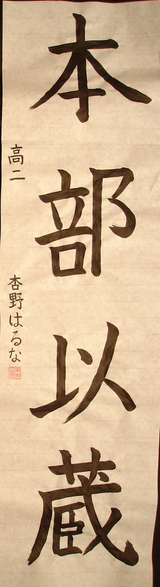 本部以蔵
高二 杏野はるな